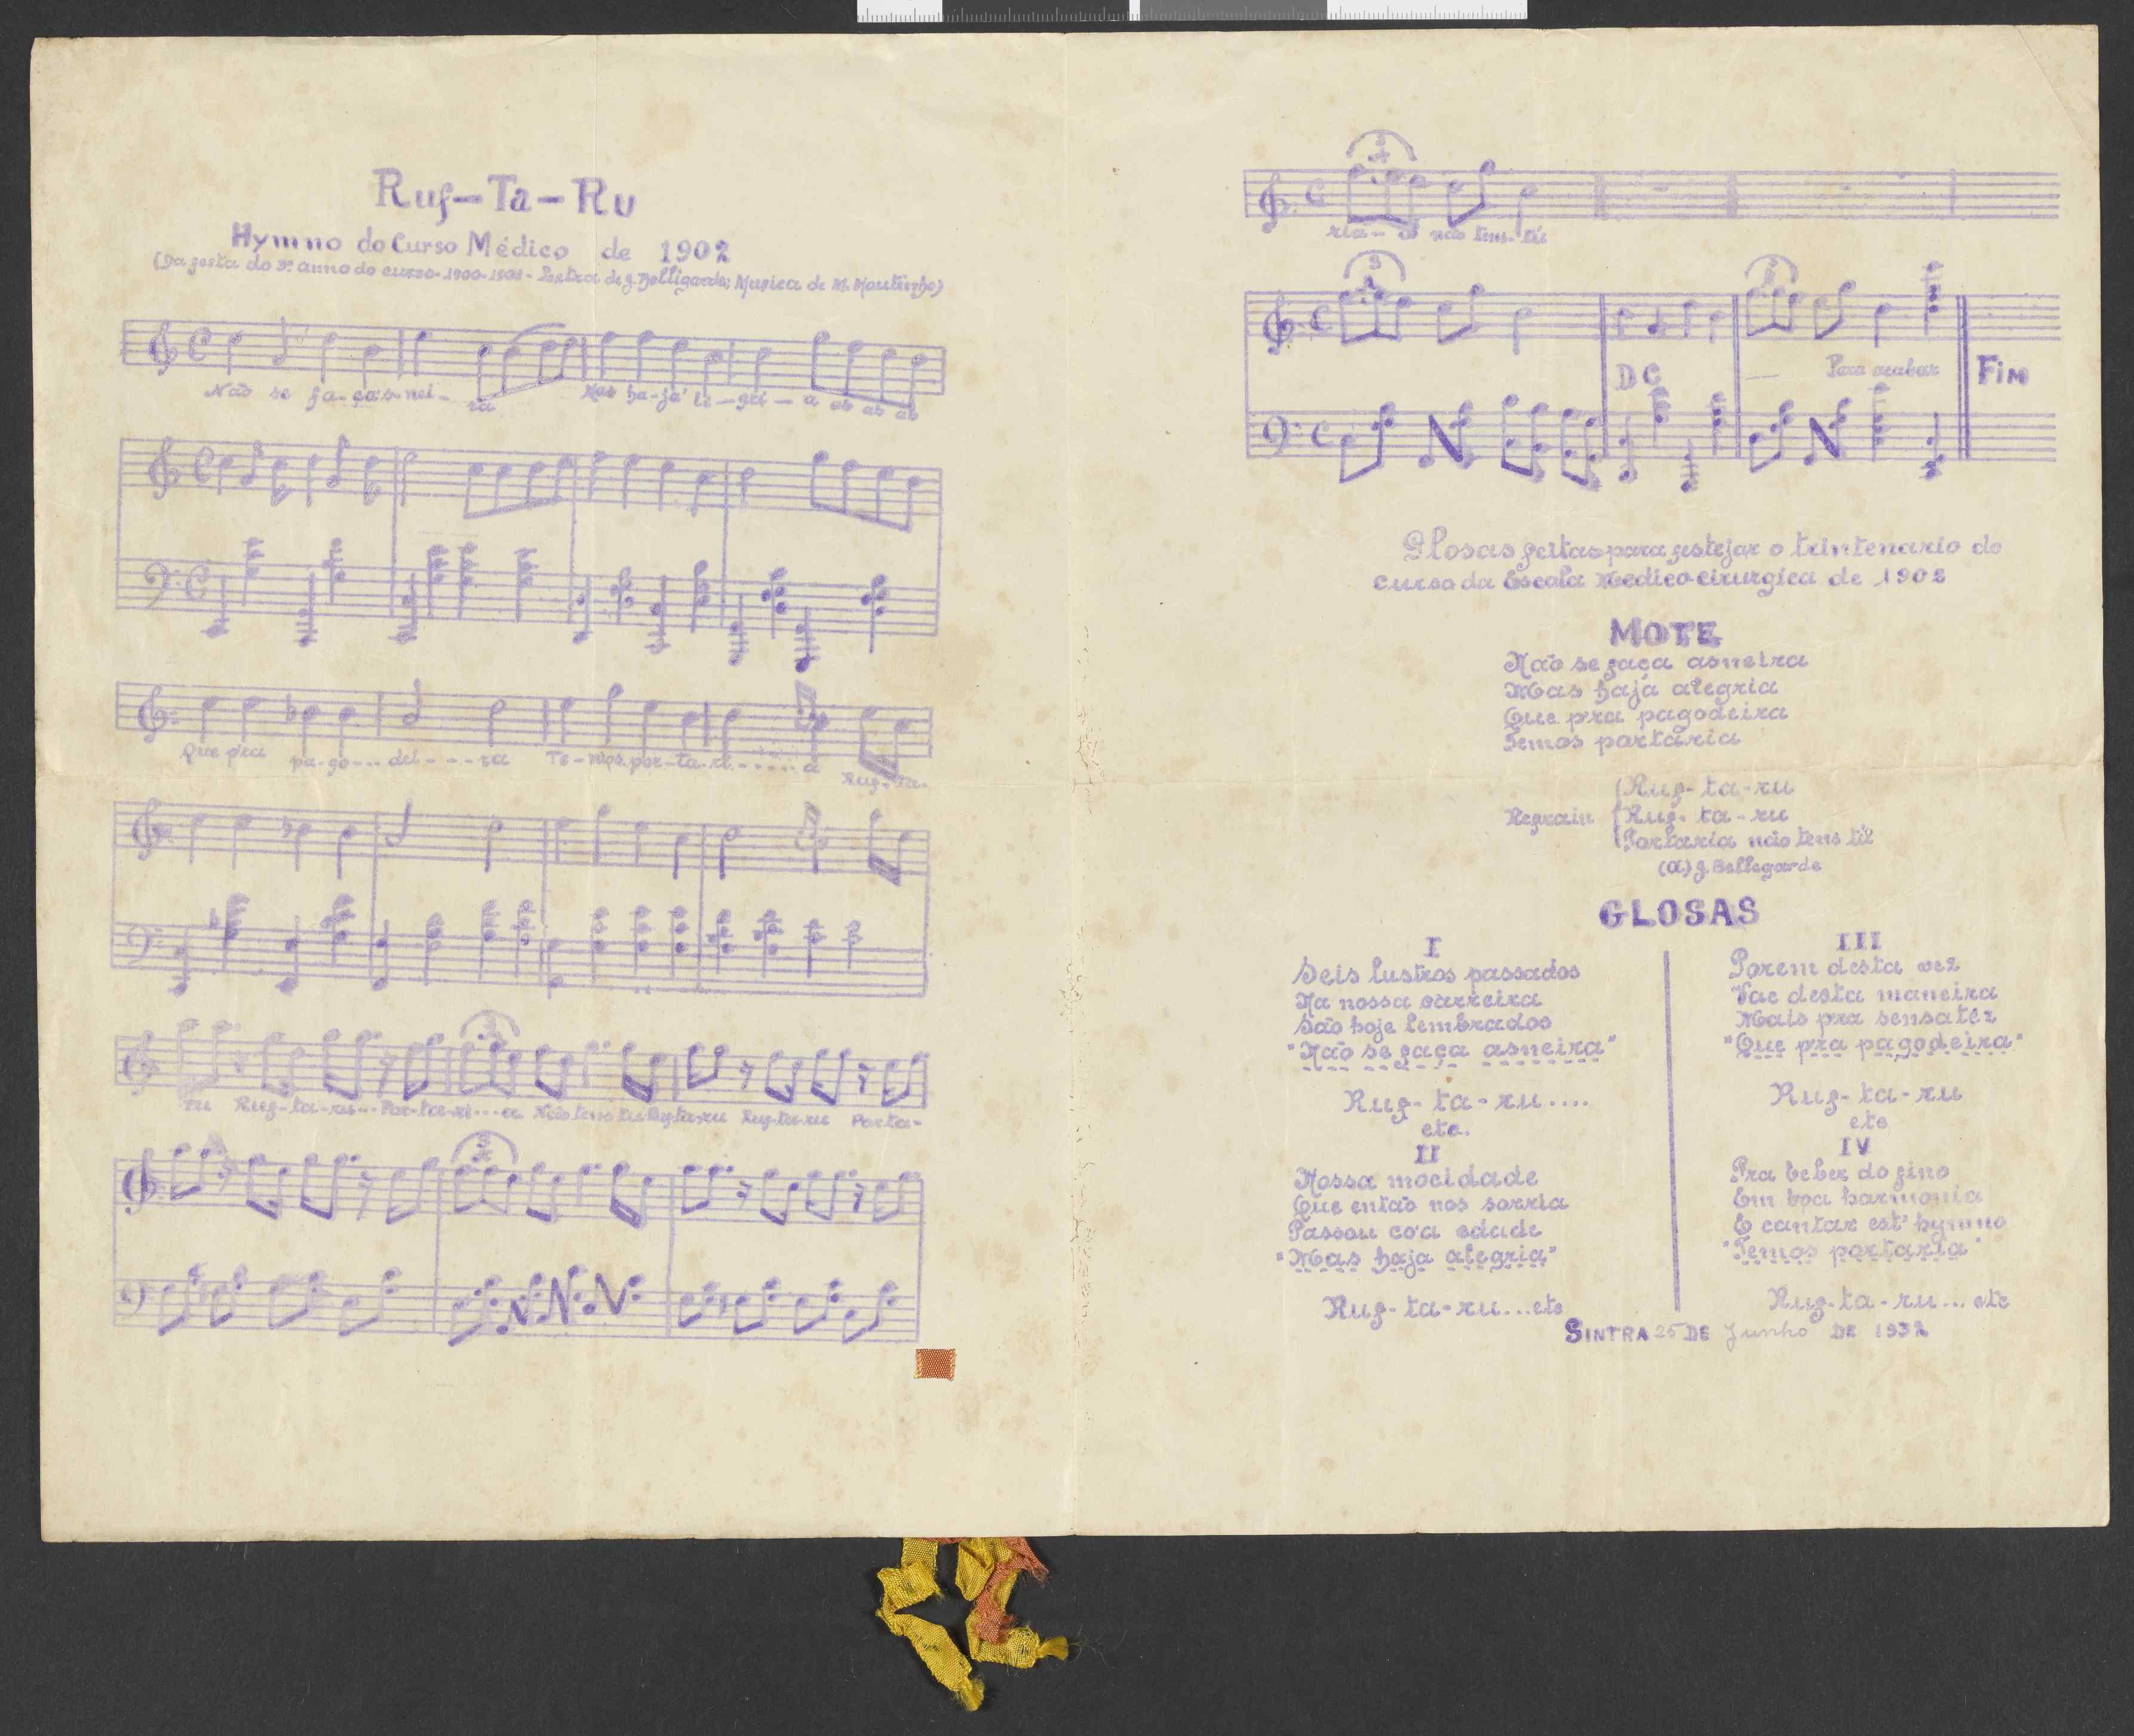 Ruf-Ta-Ru
Hymno do Curso Médico de 1902
(Da festa do 3º anno do curso-1900-1901- Lettra de J. Belligarde; Musica de M. Moutinho)
Não se fa-ças-nei-ra Mas ha-ja' le-gri-a as as as
Que p'ra pa-go---dei----ra Te-mos por-ta-ri-----a Ruf-ta-
ru Ruf-ta-ru-- Por-ta-ri---a Não tens til Ruf-ta-ru Ruf-ta-ru Porta-
ria-- não tens-til
DC Para acabar Fim
Glosas feitas para festejar o trintenario do
Curso da Escola Medico-cirurgica de 1902
MOTE
Não se faça asneira
Mas haja alegria
Que p'ra pagodeira
Temos portaria
Ruf-ta-ru
Refrain Ruf-ta-ru
Portaria não tens til
(a) J. Bellegarde
GLOSAS
I
Seis lustros passados
Na nossa carreira
São hoje lembrados
"Não se faça asneira"
Ruf-ta-ru....
etc.
II
Nossa mocidade
Que então nos sorria
Passou co'a edade
"Mas haja alegria"
Ruf-ta-ru...etc
III
Porem desta vez
Vae desta maneira
Mais pra sensatez
"Que pra pagodeira"
Ruf-ta-ru
etc
IV
Pra beber do fino
Em boa harmonia
E cantar est' hymno
"Temos portaria"
Ruf-ta-ru... etc
SINTRA 25 DE Junho DE 1932